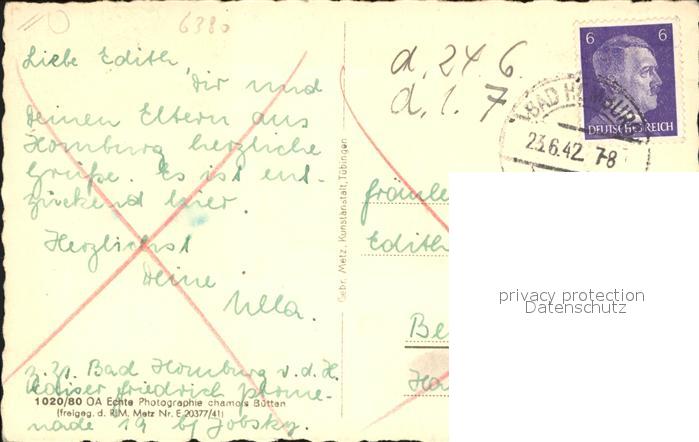 6380
Liebe Edith,
Dir und
Deinen Eltern aus
Homburg herzliche
Grüße. Es ist ent-
zückend hier.
Herzlichst
Deine
Ulla.
z. Zt. Bad Homburg v. d. H.
Kaiser Friedrich Prome-
nade 19 bj Jobsky.
1020/80 OA Echte Photographie chamois Bütten
(freigeg. d. RLM. Metz Nr. E 20377/41)
Gebr. Metz, Kunstanstalt, Tübingen
d. 24 6.
d. 1. 7
6 6
DEUTSCHES REICH
BAD HOMBURG
23.6.42. 7-8
Fräule
Edith
Be
privacy protection
Datenschutz